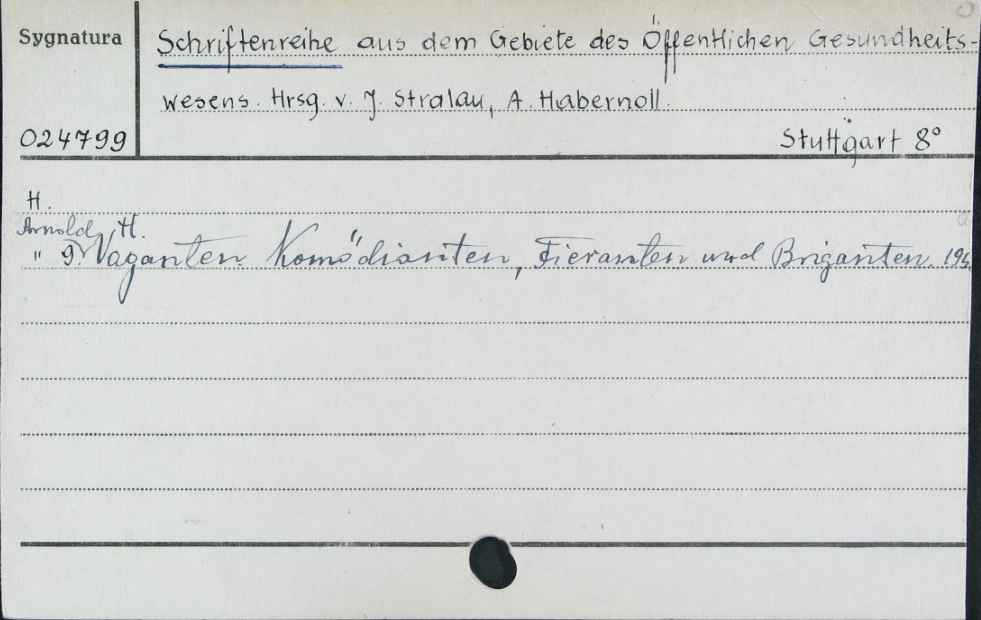 Sygnatura
Schriftenreihe aus dem Gebiete des Öffentlichen Gesundheits-
wesens. Hrsg. v. J. Stralau, A. Habernoll.
024799
Stuttgart 8°
H.
Arnold, H.
" 9. Vaganten. Komödianten, Fieranten und Briganten.